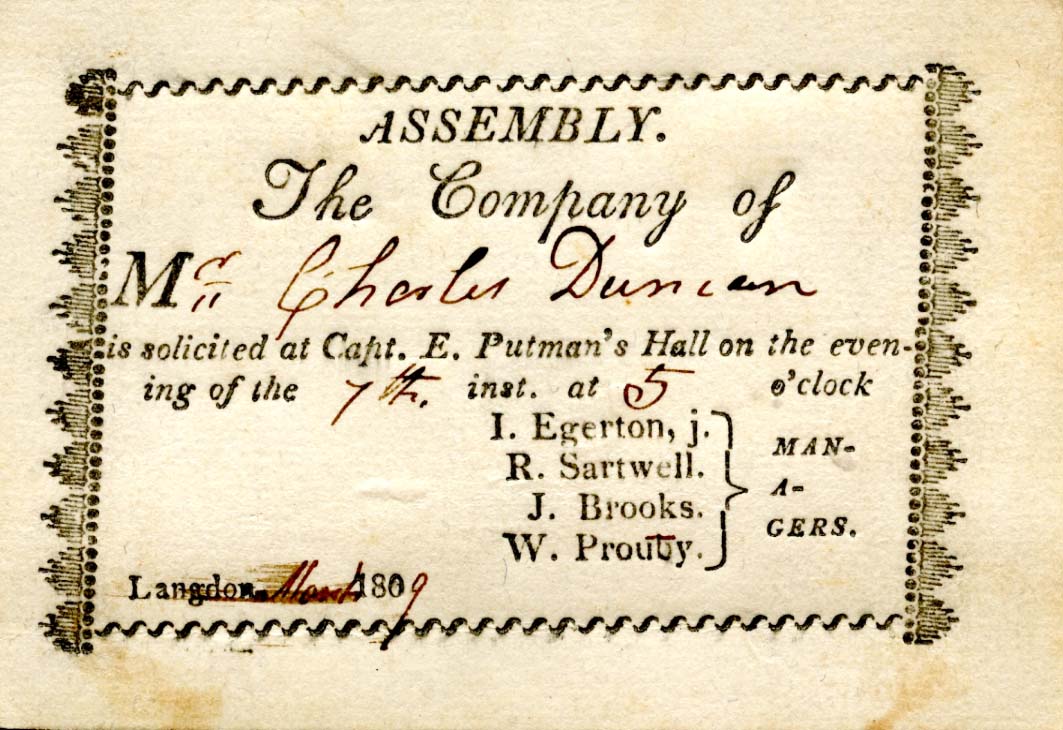 ASSEMBLY.
The Company of
Mr Charles Duncan
is solicited at Capt. E. Putman's Hall on the even-
ing of the 7th. inst. at 5 o'clock
I. Egerton, j.
R. Sartwell.
J. Brooks.
W. Prouty.
MAN-
A-
GERS.
Langdon, March 1809